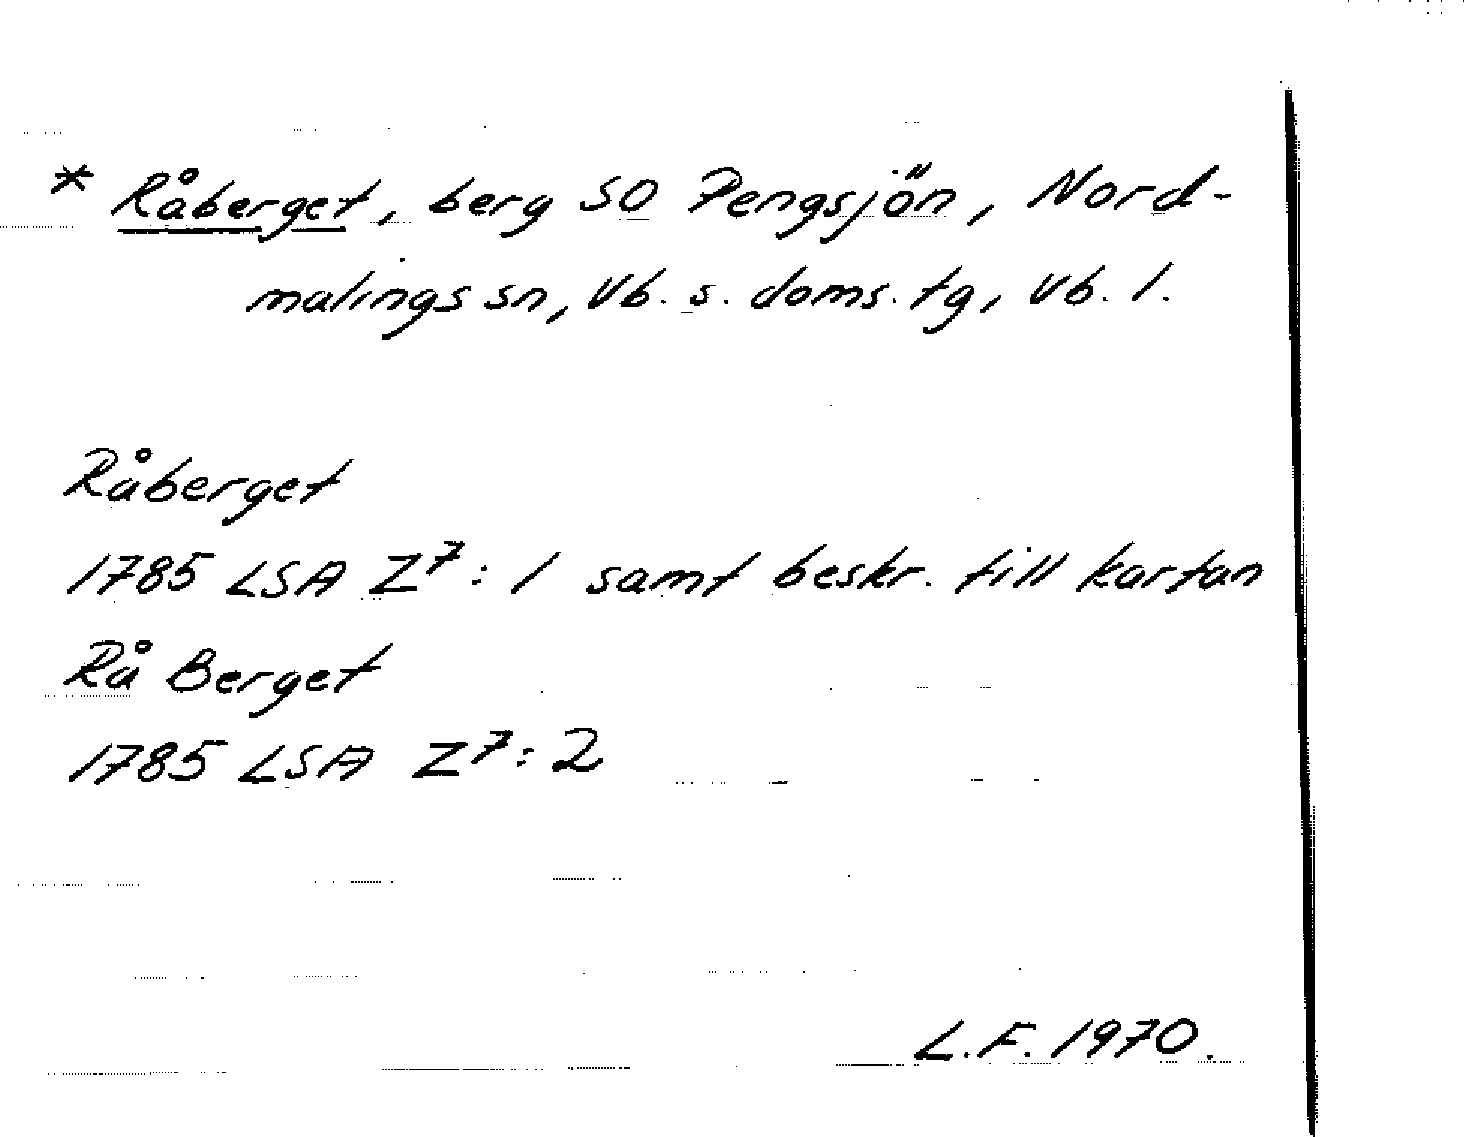 * Råberget, berg SO Pengsjön, Nord-
malings sn, Vb. s. doms. tg, Vb. l.
Råberget
1785 LSA Z⁷: 1 samt beskr. till kartan
Rå Berget
1785 LSA Z⁷: 2
L.F. 1970.